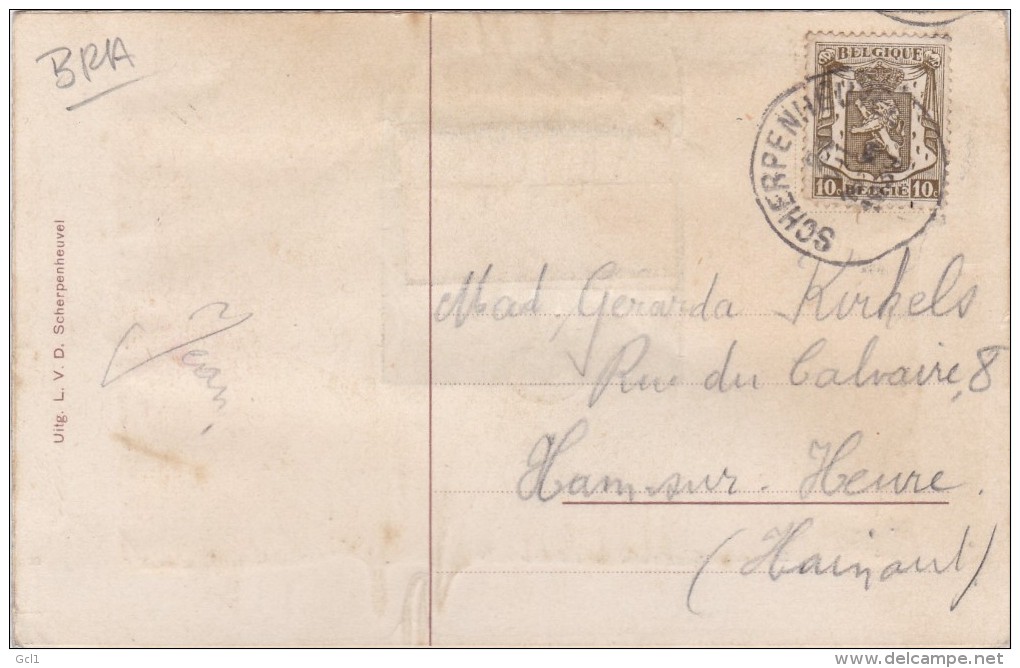 BRA
BELGIQUE
10c BELGIË 10c
SCHERPENHEU
Uitg. L. V. D. Scherpenheuvel
Jean
Mad. Gerarda Kirkels
Rue du Calvaire, 8
Ham-sur-Heure.
(Hainaut)
Gcl1
delcampe.net